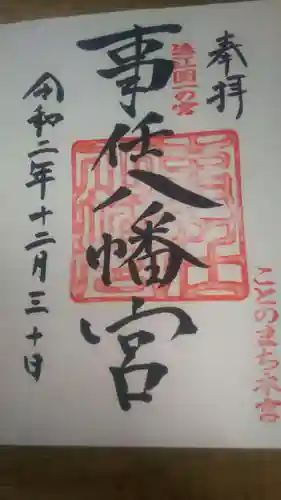 奉拝
遠江国一の宮
事任八幡宮
令和二年十二月三十日
ことのまち八幡宮